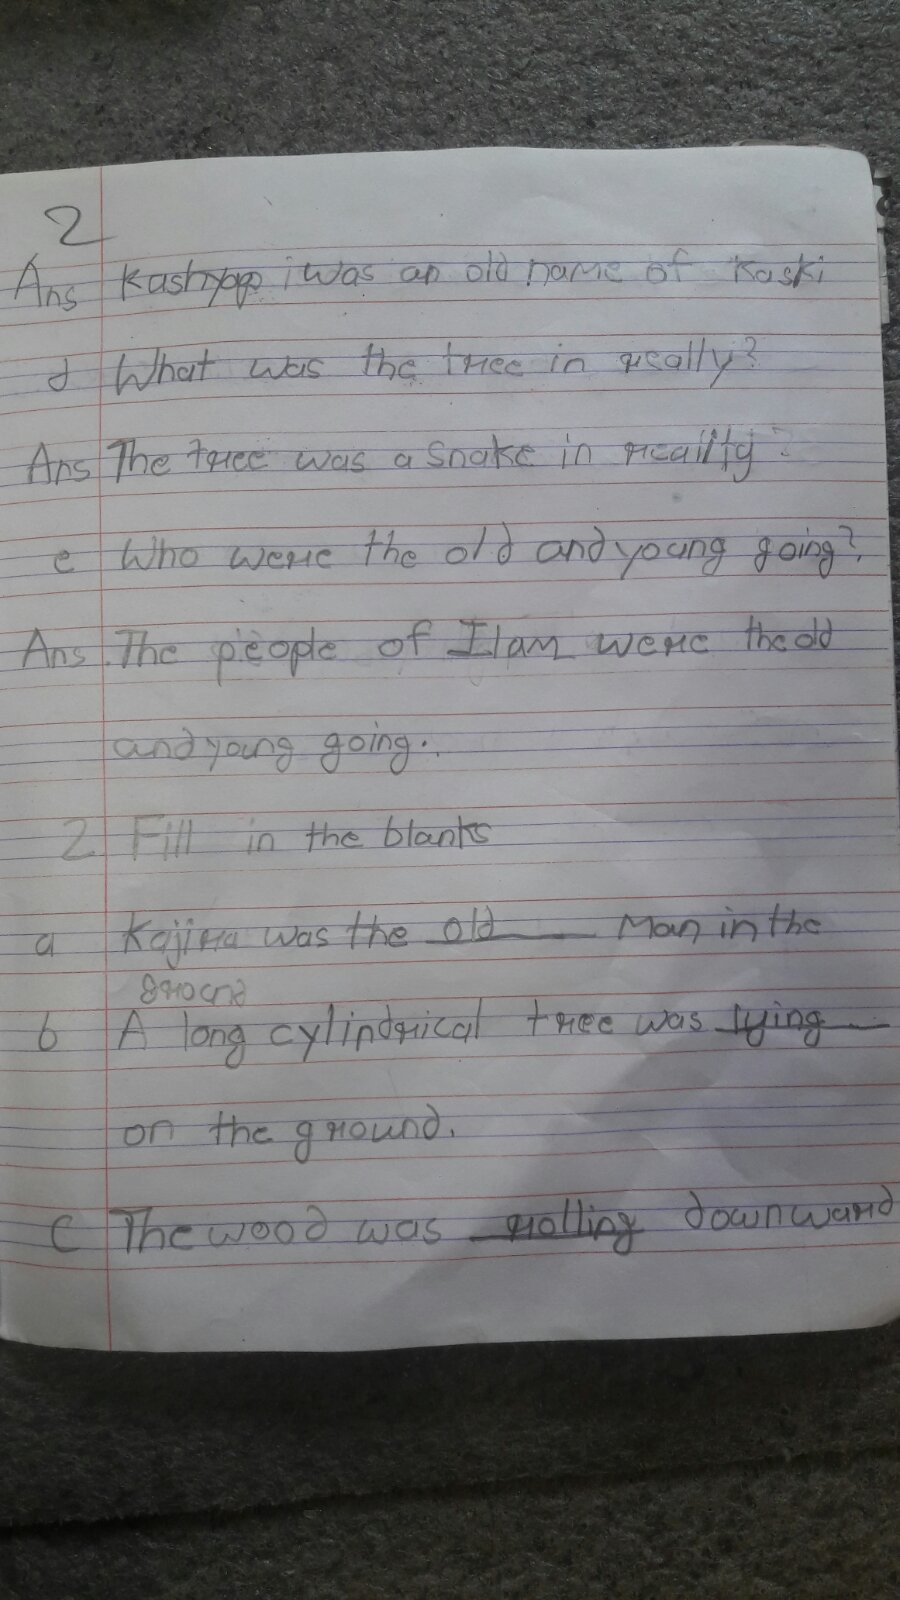 2
Ans Kashyap was an old name of Kaski
d What was the tree in really?
Ans The tree was a snake in reailty?
e Who were the old and young going?
Ans. The people of Ilam were the old
and young going.
2 Fill in the blanks
a Kajira was the old Man in the
ground
b A long cylindrical tree was lying
on the ground.
c The wood was rolling downward